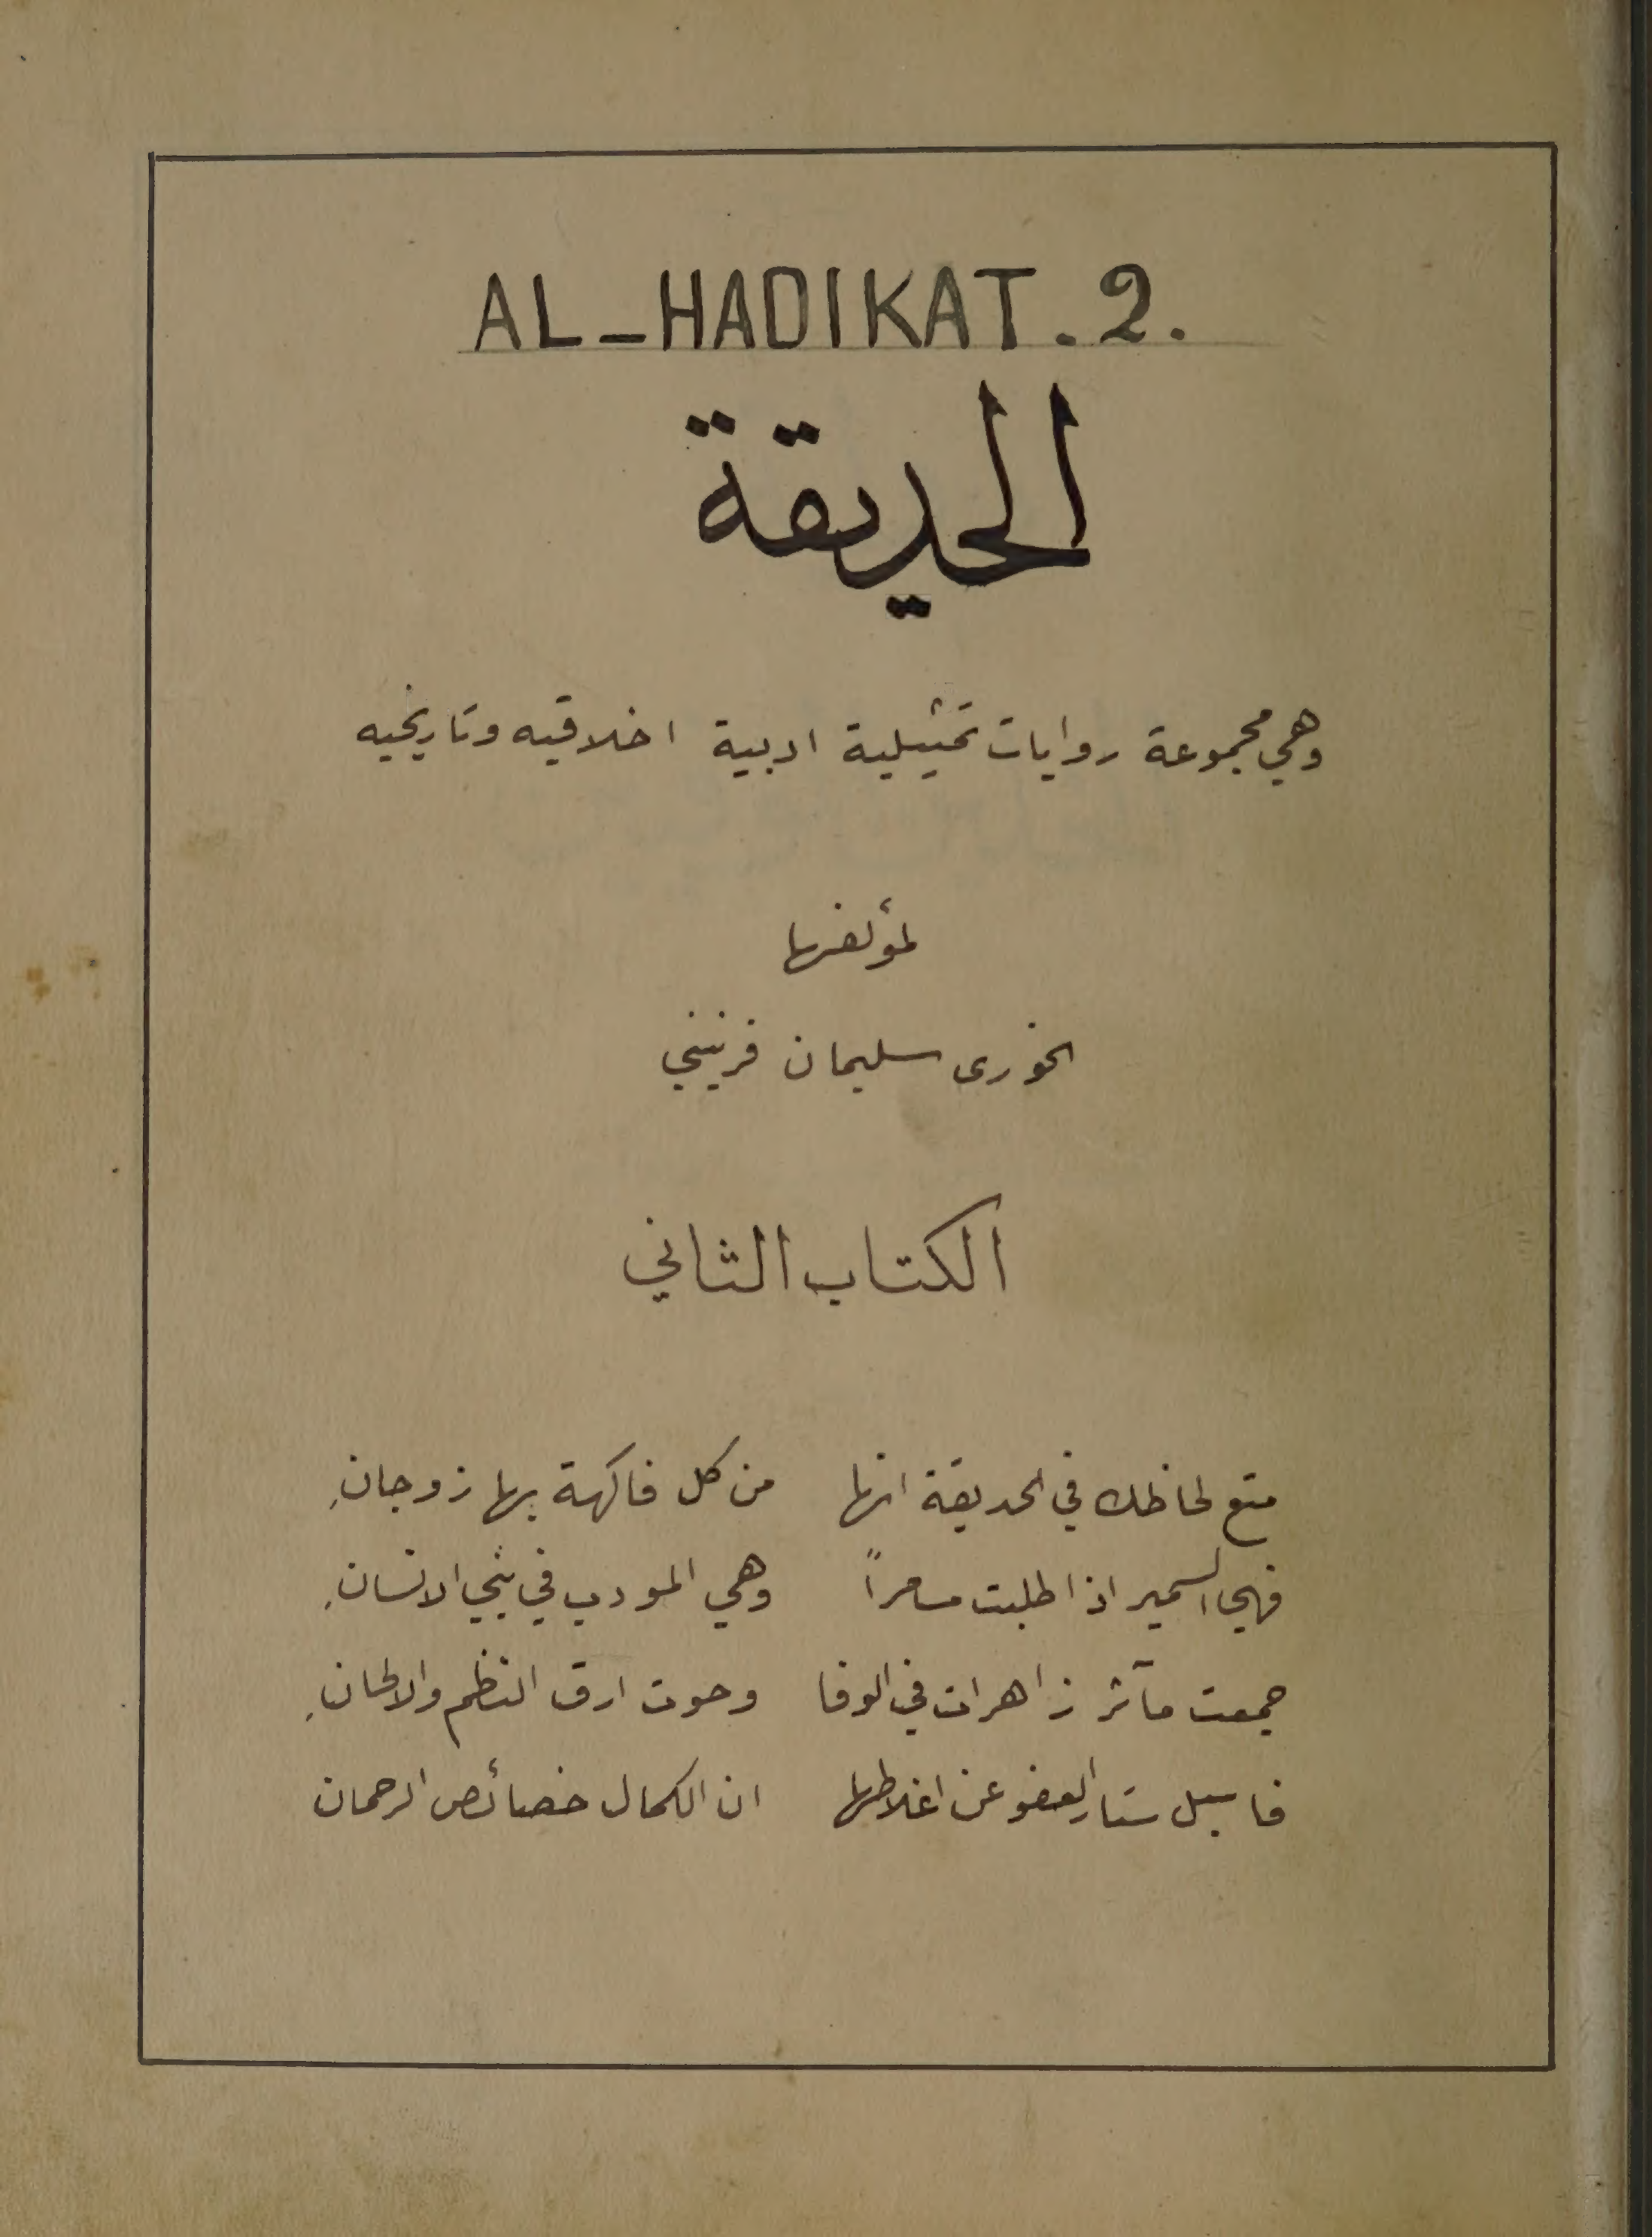 AL-HADIKAT. 2.
الحديقة
وهي مجموعة روايات تمثيلية ادبية اخلاقيه وتاريخيه
لمؤلفها
الخورى سليمان فرنيني
الكتاب الثاني
متع لحاظك في الحديقة انها من كل فاكهة بها زوجانِ
فهي السمير اذا طلبت مسامراً وهي المودب في بني الانسانِ
جمعت مآثر زاهرات في الوفا وحوت ارق النظم والالحانِ
فاسبل ستار العفو عن اغلاطها ان الكمال خصائص الرحمان